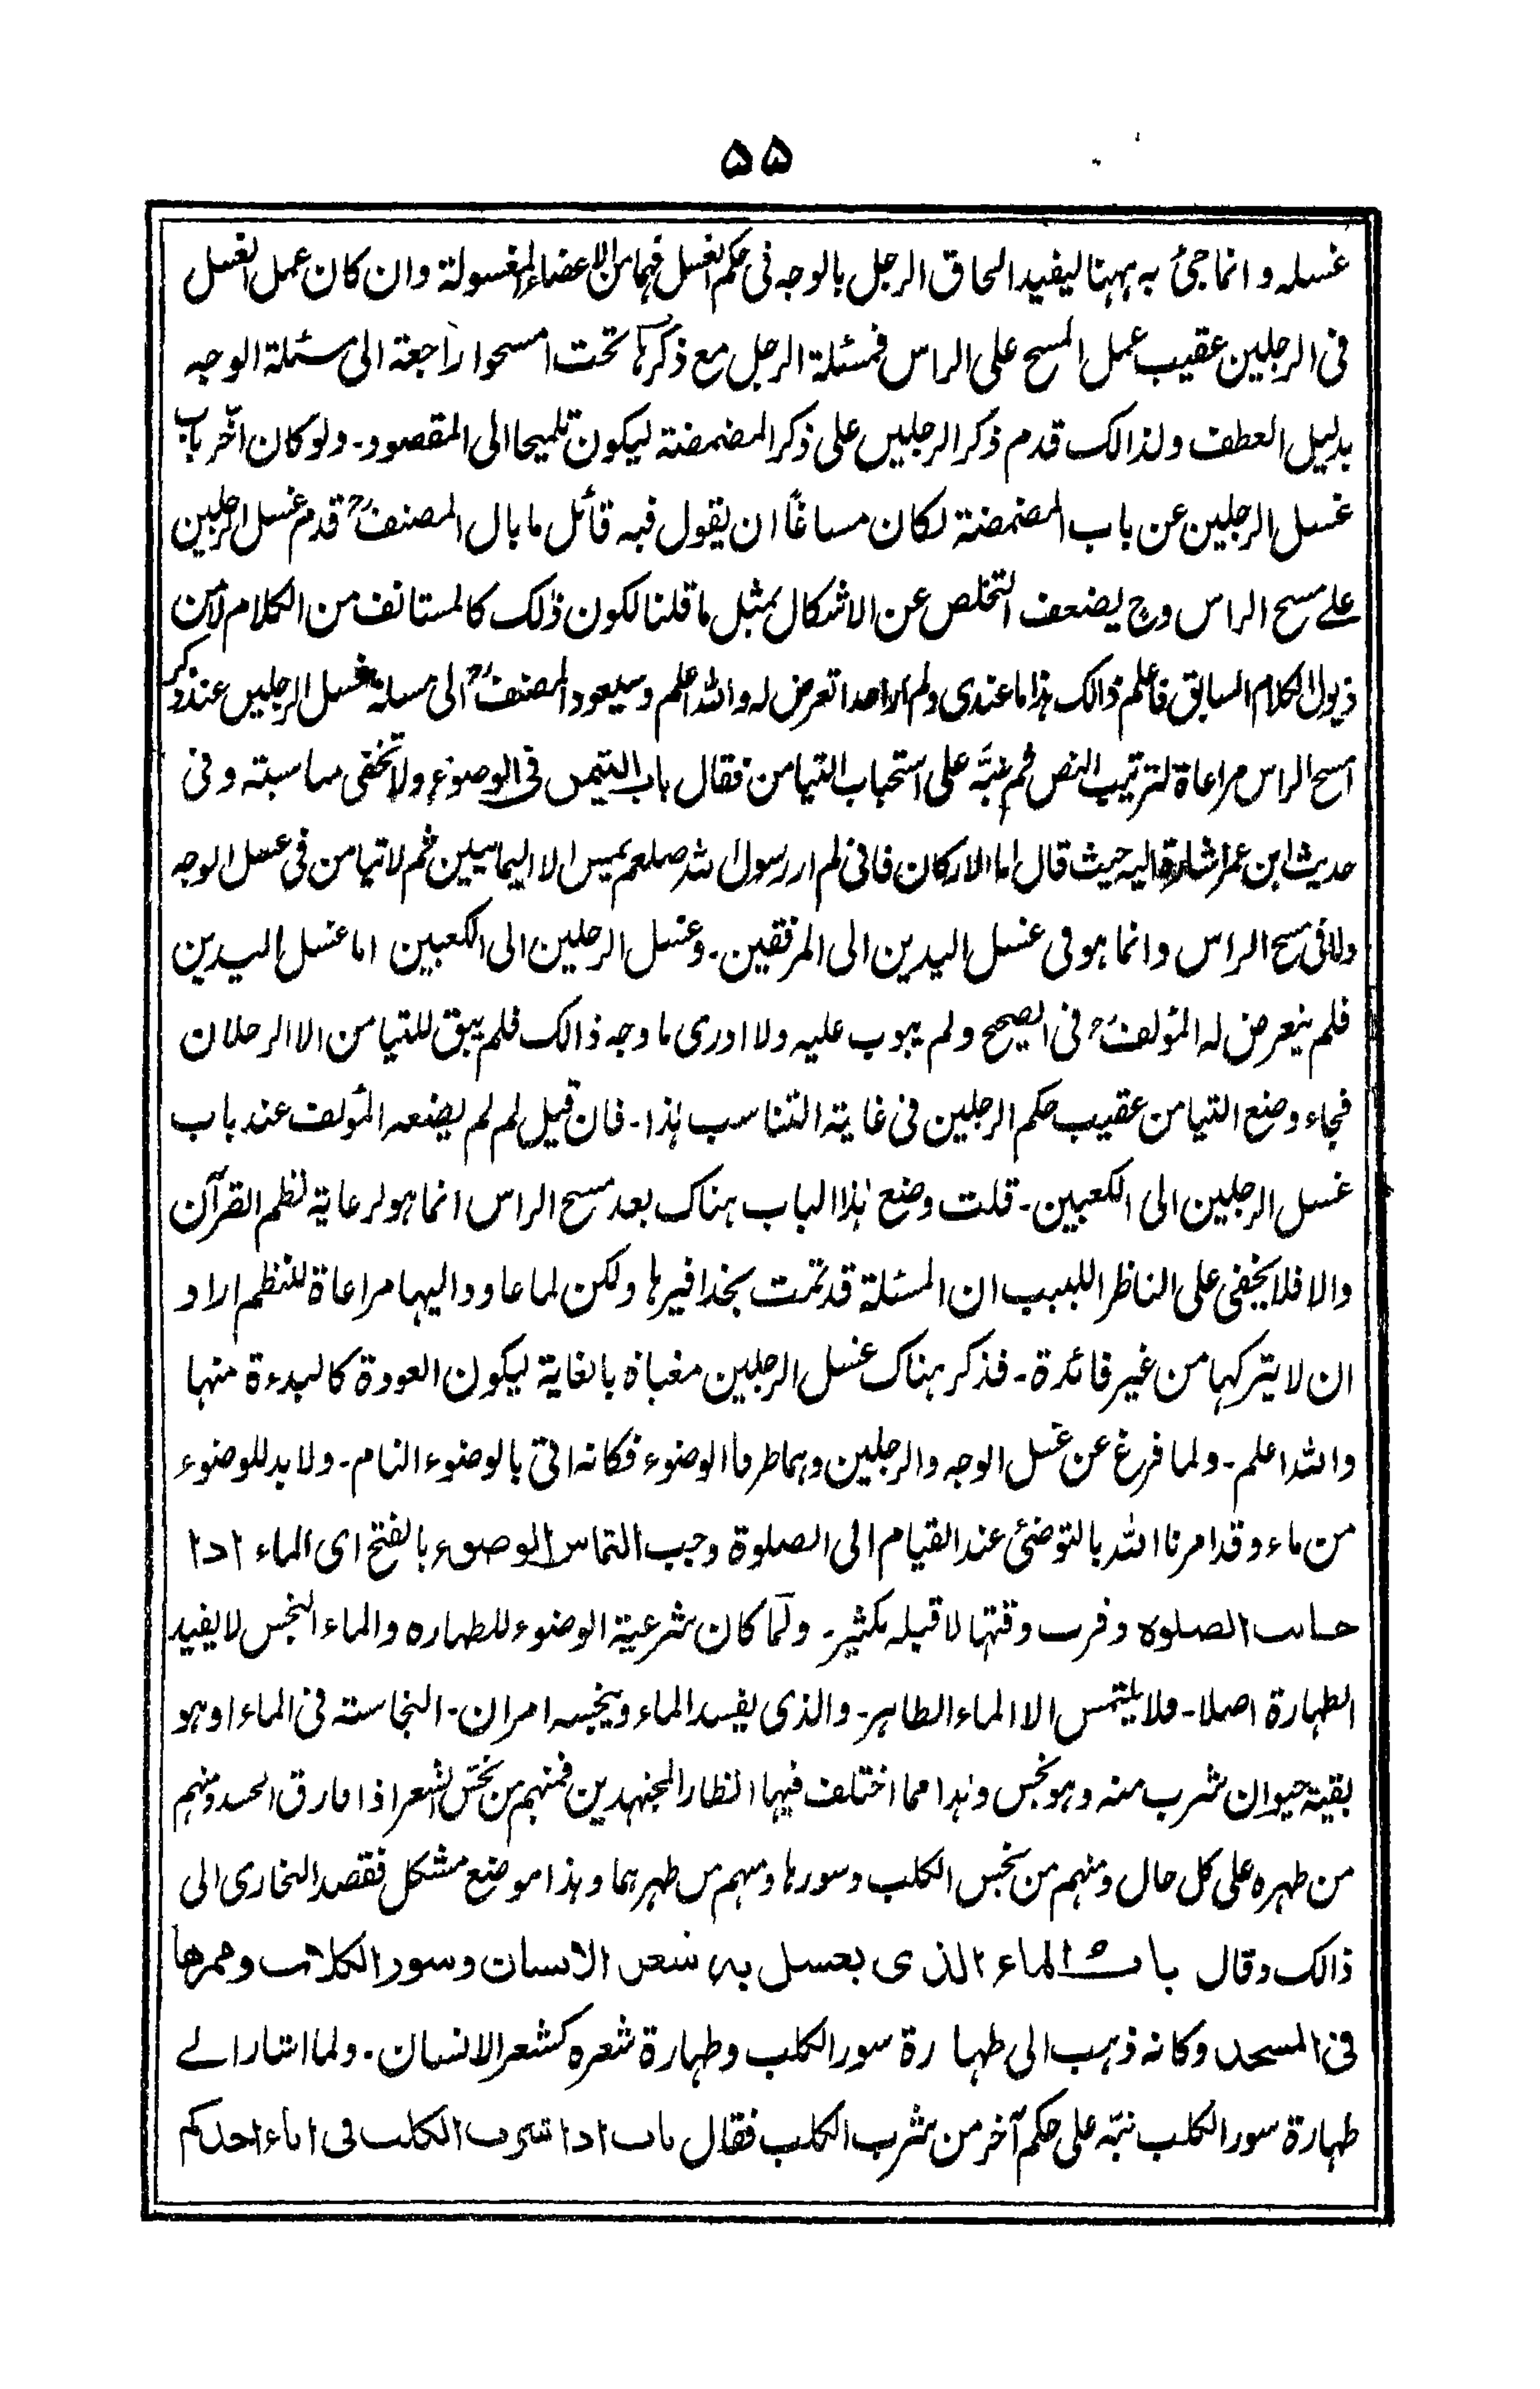 ۵۵
غسله وانما جئ به ههنا ليفيد الحاق الرجل بالوجه فى حكم الغسل فهما من الاعضاء المغسولة وان كان عمل الغسل
فى الرجلين عقيب عمل المسح على الراس فمسئلة الرجل مع ذكرها تحت امسحوا راجعة الى مسئلة الوجه
بدليل العطف ولذالك قدم ذكر الرجلين على ذكر المضمضة ليكون تلميحا الى المقصود۔ ولو كان اخّر باب
غسل الرجلين عن باب المضمضة لكان مساغًا ان يقول فيه قائل ما بال المصنفؒ قدم غسل الرجلين
على مسح الراس وح يضعف التخلص عن الاشكال بمثل ما قلنا لكون ذلك كالمستانف من الكلام لا من
ذيول الكلام السابق فاعلم ذالك هذا ما عندى ولم ار احدا تعرض له والله اعلم وسيعود المصنفؒ الى مسئلة غسل الرجلين عند ذكر
مسح الراس مراعاة لترتيب النص ثم نبّه على استحباب التيامن فقال باب التيمن فى الوضوء ولا تخفى مناسبته وفى
حديث ابن عمر اشارة اليه حيث قال اما الاركان فانى لم ار رسول الله صلعم يمس الا اليمانيين ثم لا تيامن فى غسل الوجه
ولا فى مسح الراس وانما هو فى غسل اليدين الى المرفقين۔ وغسل الرجلين الى الكعبين اما غسل اليدين
فلم يتعرض له المؤلفؒ فى الصحيح ولم يبوب عليه ولا ادرى ما وجه ذالك فلم يبق للتيامن الا الرجلان
فجاء وضع التيامن عقيب حكم الرجلين فى غاية التناسب هذا۔ فان قيل لم لم يضعه المؤلف عند باب
غسل الرجلين الى الكعبين۔ قلت وضع هذا الباب هناك بعد مسح الراس انما هو لرعاية نظم القرآن
والا فلا يخفى على الناظر اللبيب ان المسئلة قد تمت بحذافيرها ولكن لما عاود اليها مراعاة للنظم اراد
ان لا يتركها من غير فائدة۔ فذكر هناك غسل الرجلين مغياة بالغاية ليكون العودة كالبدءة منها
والله اعلم۔ ولما فرغ عن غسل الوجه والرجلين وهما طرفا الوضوء فكانه اتى بالوضوء التام۔ ولا بد للوضوء
من ماء وقد امرنا الله بالتوضئ عند القيام الى الصلوة وجب التماس الوضوء بالفتح اى الماء اذا
حانت الصلوة وقرب وقتها لا قبله بكثير۔ ولمّا كان شرعية الوضوء للطهارة والماء النجس لا يفيد
الطهارة اصلا۔ فلا يلتمس الا الماء الطاهر۔ والذى يفسد الماء وينجسه امران۔ النجاسة فى الماء او هو
بقية حيوان شرب منه وهو نجس وهذا مما اختلف فيها انظار المجتهدين فمنهم من نجّس الشعر اذا فارق الجسد ومنهم
من طهره على كل حال ومنهم من نجس الكلب وسورها ومنهم من طهرهما وهذا موضع مشكل فقصد البخارى الى
ذالك وقال باب الماء الذى يغسل به شعر الانسان وسور الكلاب وممرها
فى المسجد وكانه ذهب الى طهارة سور الكلب وطهارة شعره كشعر الانسان۔ ولما اشار الے
طهارة سور الكلب نبّه على حكم آخر من شرب الكلب فقال باب اذا شرب الكلب فى اناء احدكم